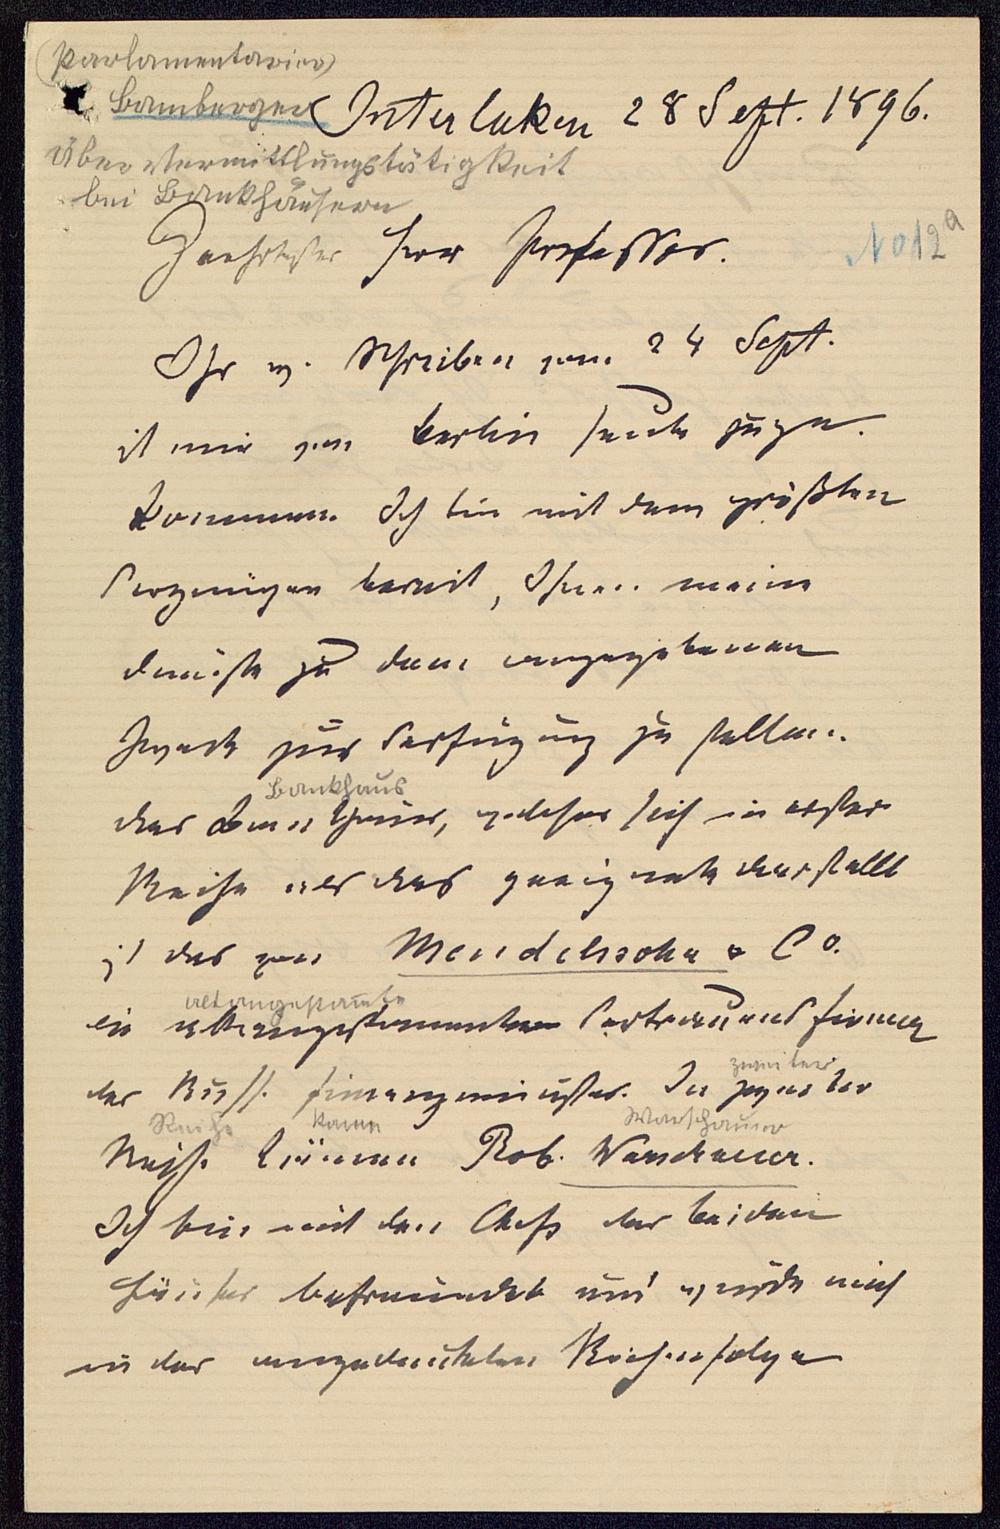 (Parlamentarier)
Bamberger
Interlaken 28 Sept. 1896.
über Vermittlungstätigkeit
bei Bankhäusern
Geehrtester Herr Professor.
No 12a
Ihr w. Schreiben vom 24 Sept.
ist mir von Berlin heute zuge-
kommen. Ich bin mit dem größten
Vergnügen bereit, Ihnen meine
Dienste zu dem angegebenen
Zweck zur Verfügung zu stellen.
Bankhaus
Das Bankhaus, welches sich in erster
Reihe als das geeignete darstellt
ist das von Mendelssohn & Co.
altangestammte
die altangestammte Vertrauensfirma
des Russ. Finanzministers. In zweiter
zweiter
Reihe kann Warschauer
Reihe käme Rob. Warschauer.
Ich bin mit den Chefs der beiden
Häuser befreundet und würde mich
in der angedeuteten Reihenfolge